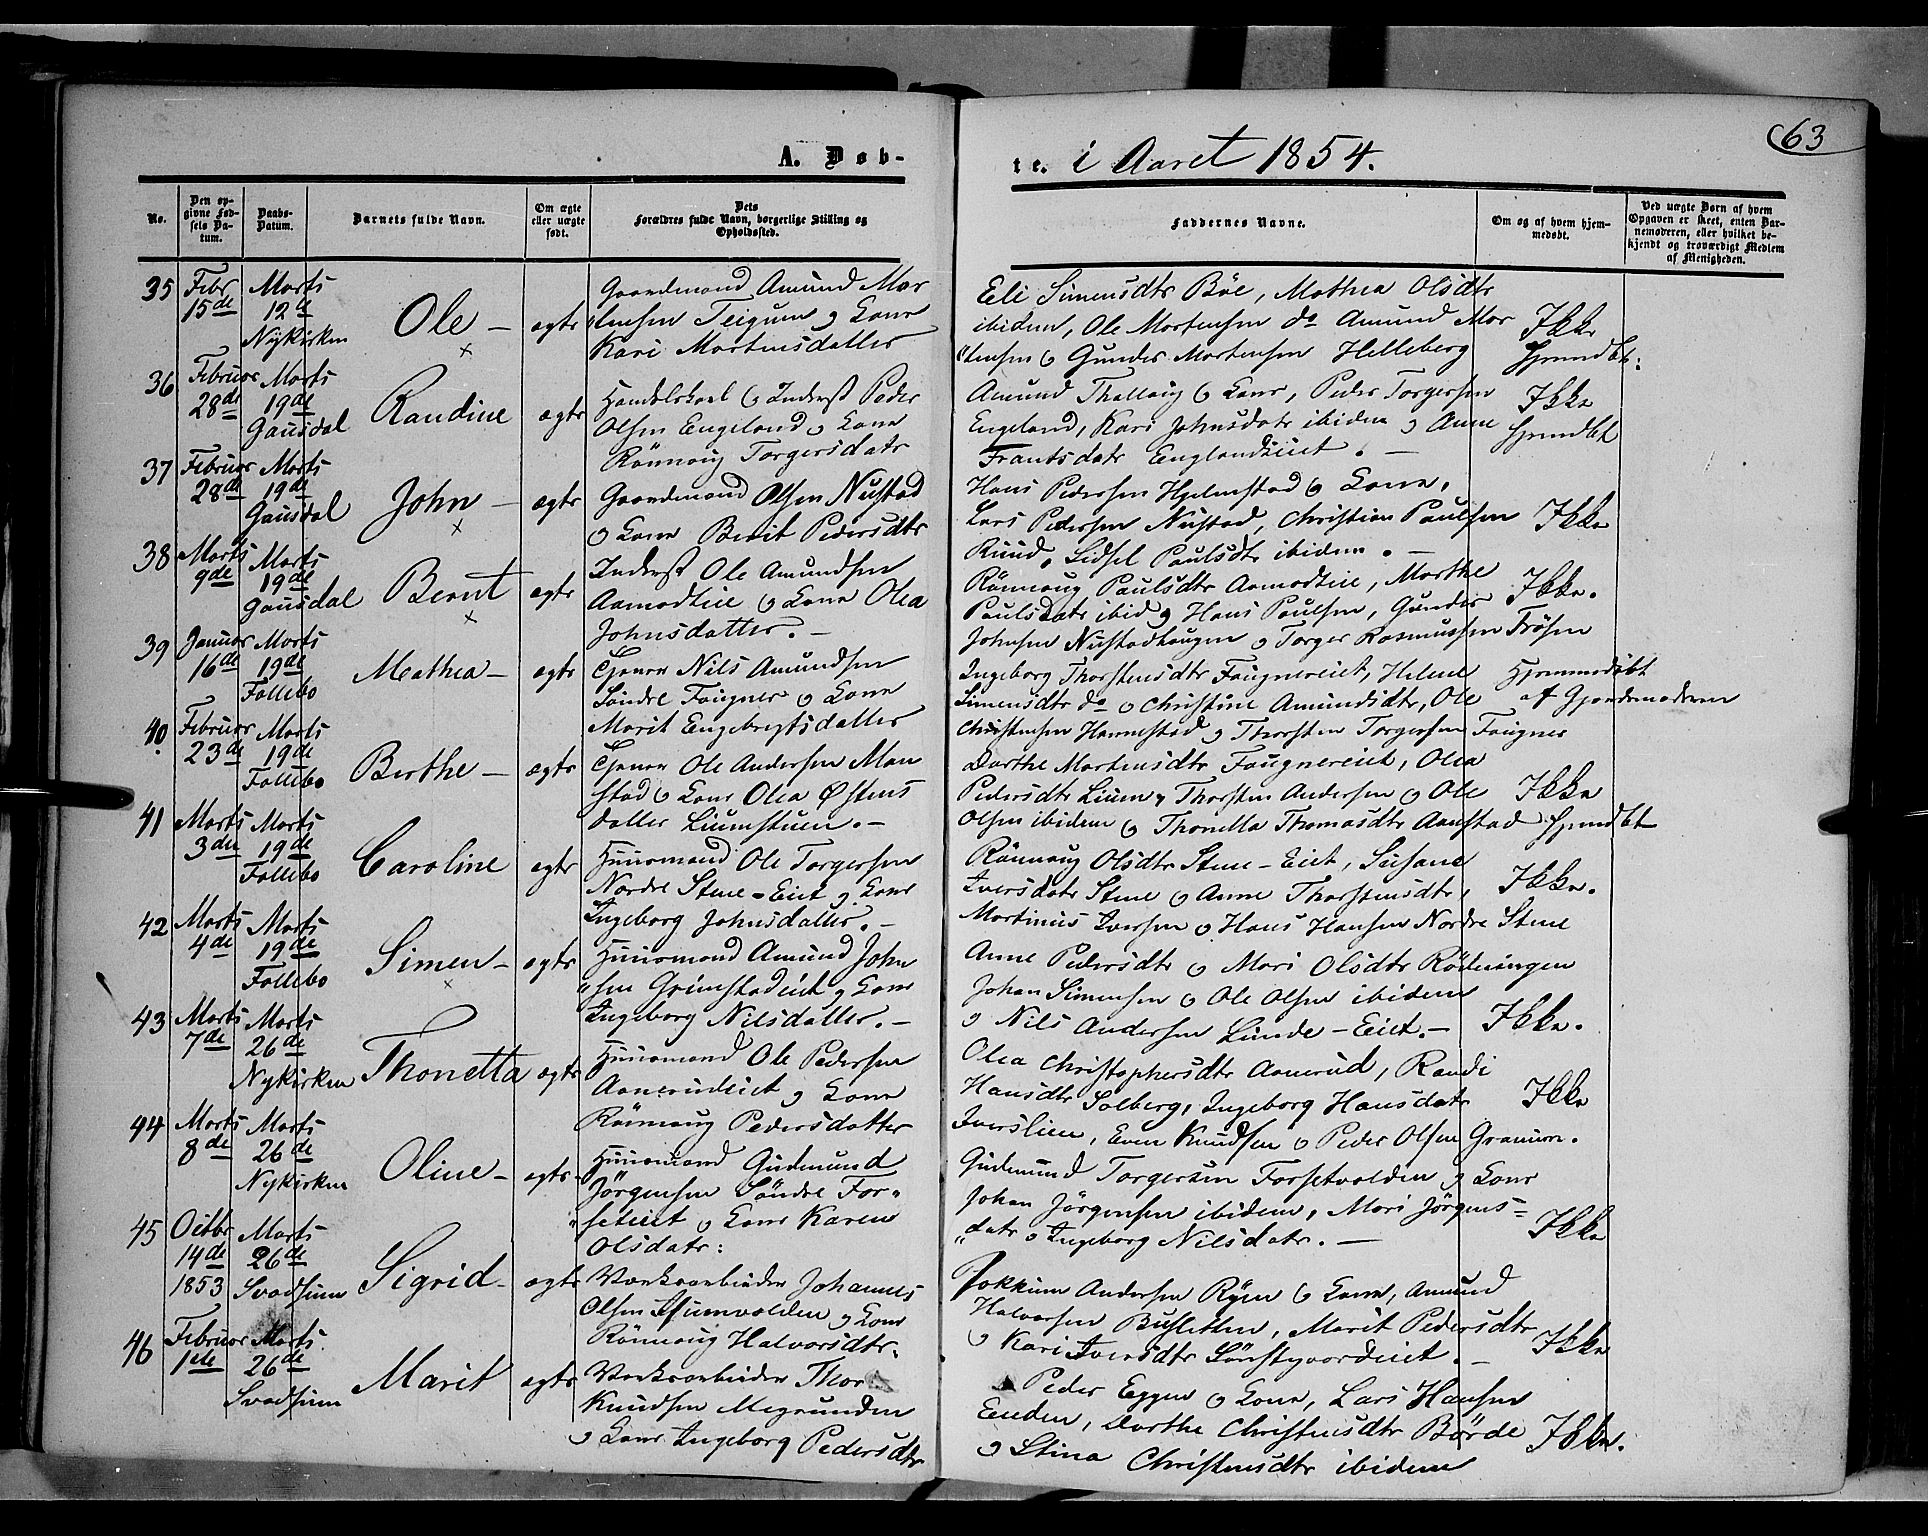 63
A. Døb-
te. i Aaret 1854.
No.
Den opgivne Fødsels Datum.
Daabs-Datum.
Barnets fulde Navn.
Om ægte eller uægte født.
Dets Forældres fulde Navn, borgerlige Stilling og Opholdssted.
Faddernes Navne.
Om og af hvem hjemmedøbt.
Ved uægte Børn af hvem Opgaven er skeet, enten Barnemoderen, eller hvilket bekjendt og troværdigt Medlem af Menigheden.
35 Febr 15de Marts 12te Nykirken Ole – ægte
Gaardmand Amund Mor
tensen Teigum og Kone
Kari Mortensdatter
Eli Simensdtr Böe, Mathea Olsdtr
ibidem, Ole Mortensen do Amund Mor
tensen og Gunder Mortensen Helleberg
Ikke
36 Februar 28de Marts 19de Gausdal Randine ægte
Olsen Engeland og Kone
Rönnaug Torgersdatr
Amund Thallaug og Kone, Peder Torgersen
Engeland, Kari Johnsdatr ibidem og Anne
Frantsdatr Englandseiet. –
Ikke
37 Februar 28de Marts 19de Gausdal John – ægte
Gaardmand Olsen Nustad
og Kone Berit Pedersdtr
Hans Pedersen Hjelmstad og Kone,
Lars Pedersen Nustad, Christian Paulsen
Ruud, Sidsel Paulsdtr ibidem. –
Ikke
38 Marts 9de Marts 19de Gausdal Bernt ægte
Inderst Ole Amundsen
Aamodtlie og Kone Olea
Johnsdatter. –
Rönnaug Paulsdtr Aamodtlie, Marthe
Paulsdatr ibid og Hans Paulsen, Gunder
Johnsen Nustadhaugen og Torger Rasmussen Frösen
Ikke.
39 Januar 16de Marts 19de Follebo Mathea – ægte
Nils Amundsen
Söndre Faugner og Kone
Marit Engebregtsdatter
Ingeborg Thorstensdtr Faugnereiet, Helene
Simensdtr do og Christine Amundsdtr, Ole
Christensen Hannestad og Thorsten Torgersen Faugner
Hjemmedøbt
af Gjordemoderen
40. Februar 23de Marts 19de Follebo Berthe – ægte
Ole Andersen Man
stad og Kone Olea Østens
datter Liumstuen. –
Dorthe Mortensdtr Faugnereiet, Olea
Pedersdtr Liuen, Thorsten Andersen og Ole
Olsen ibidem og Thonette Thomasdtr Aanstad
Ikke
41 Marts 3die Marts 19de Follebo Caroline ægte
Huusmand Ole Torgersen
Nordre Stene-Eiet og Kone
Ingeborg Johnsdatter. –
Rönnaug Olsdtr Stene-Eiet, Susane
Iversdatr Stene og Anne Thorstensdtr,
Martinus Iversen og Hans Hansen Nordre Stene
Ikke.
42 Marts 4de Marts 19de Follebo Simen – ægte
Huusmand Amund John
sen Grimstadeiet og Kone
Ingeborg Nilsdatter. –
Anne Pedersdtr og Mari Olsdtr Rödningen
Johan Simensen og Ole Olsen ibidem
og Nils Andersen Linde-Eiet. –
Ikke.
43 Marts 7de Marts 26de Nykirken Thonetta ægte
Huusmand Ole Pedersen
Aanerudeiet og Kone
Rönnaug Pedersdatter
Olea Christophersdtr Aanerud, Randi
Hansdtr Solberg, Ingeborg Hansdatr
Iverslien, Even Knudsen og Peder Olsen Granum.
Ikke
44 Marts 8de Marts 26de Nykirken Oline – ægte
Huusmand Gudmund
Jörgensen Söndre For-
seteiet og Kone Karen
Olsdatr:
Gudmund Torgersen Forsetvolden og Kone
Johan Jörgensen ibidem, Mari Jörgens-
datr og Ingeborg Nilsdatr. –
Ikke
45 Octbr 14de 1853 Marts 26de Svadsum Sigrid – ægte
Værksarbeider Johannes
og Kone
Rönnaug Halvorsdtr.
Andersen Ryen og Kone, Amund
Halvorsen Busletten, Marit Pedersdtr
og Kari Iversdtr –
Ikke
46 Februar 1ste Marts 26de Svadsum Marit ægte
Værksarbeider Thor
Knudsen Megrunden
og Kone Ingeborg Pedersdtr
Peder Eggen og Kone, Lars Hansen
Enden, Dorthe Christensdtr Börde
og Stina Christensdtr ibidem
Ikke.